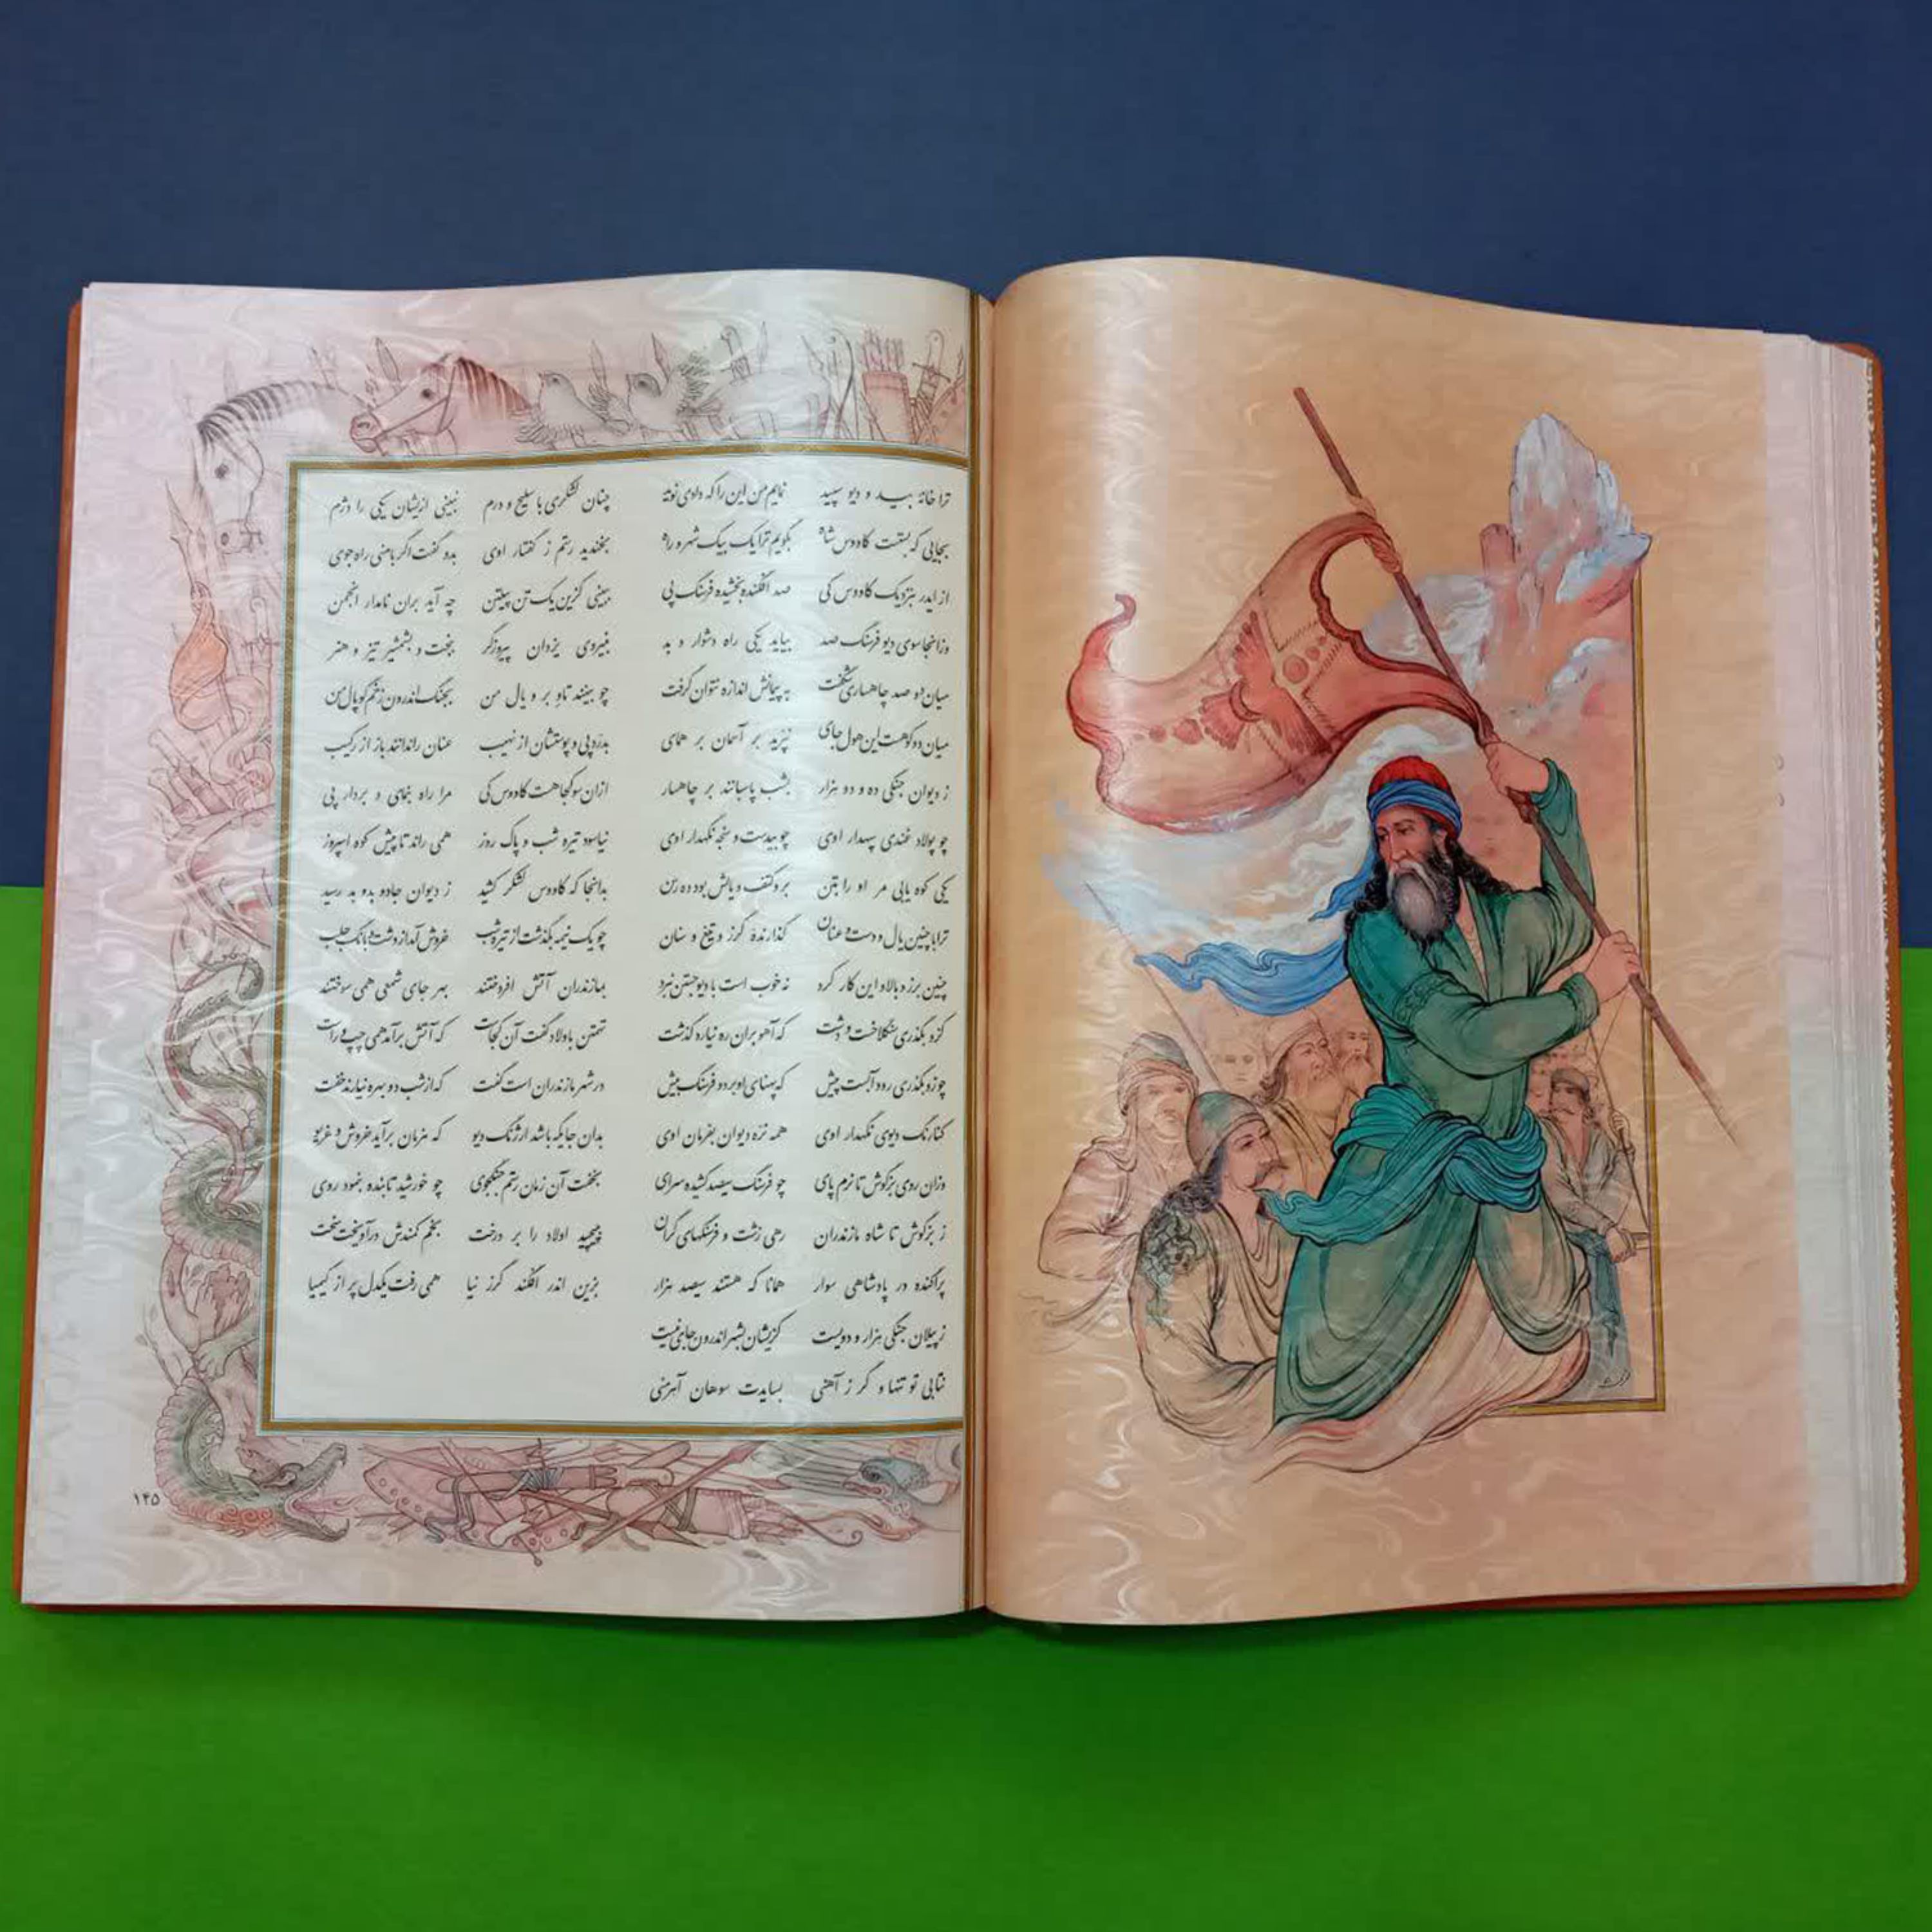 ترا خانهٔ بید و دیو سپید نمایم من این را که دادی نوید
بجایی که بستست کاووس شاه بگویم ترا یک بیک شهر و راه
از ایدر بنزدیک کاووس کی صد افگنده بخشیده فرسنگ پی
وزانجا سوی دیو فرسنگ صد بیاید یکی راه دشوار و بد
میان دو صد چاهساری شگفت به پیمانش اندازه نتوان گرفت
میان دو کوهست این هول جای نپرید بر آسمان بر همای
ز دیوان جنگی ده و دو هزار بشب پاسبانند بر چاهسار
چو پولاد غندی سپهدار اوی چو بیدست و سنجه نگهدار اوی
یکی کوه یابی مر او را بتن بر و کتف و یالش بود ده رسن
ترا با چنین یال و دست و عنان گذارندهٔ گرز و تیغ و سنان
چنین برز و بالا و این کار کرد نه خوب است با دیو جستن نبرد
کزو بگذری سنگلاخست و دشت که آهو بران ره نیارد گذشت
چو زو بگذری رود آبست پیش که پهنای او بر دو فرسنگ بیش
کنارنگ دیوی نگهدار اوی همه نره دیوان بفرمان اوی
وزان روی بزگوش تا نرم پای چو فرسنگ سیصد کشیده سرای
ز بزگوش تا شاه مازندران رهی زشت و فرسنگهای گران
پراگنده در پادشاهی سوار همانا که هستند سیصد هزار
ز پیلان جنگی هزار و دویست کزیشان بشهر اندرون جای نیست
نتابی تو تنها و گر ز آهنی بسایدت سوهان آهرمنی
چنان لشکری با سلیح و درم نبینی ازیشان یکی را دژم
بخندید رستم ز گفتار اوی بدو گفت اگر با منی راه جوی
ببینی کزین یک تن پیلتن چه آید بران نامدار انجمن
بنیروی یزدان پیروزگر ببخت و بشمشیر تیز و هنر
چو بینند تاو بر و یال من بجنگ اندرون زخم گوپال من
بدرد پی و پوستشان از نهیب عنان را ندانند باز از رکیب
ازان سو کجا هست کاووس کی مرا راه بنمای و بردار پی
نیاسود تیره شب و پاک روز همی راند تا پیش کوه اسپروز
بدانجا که کاووس لشکر کشید ز دیوان جادو بدو بد رسید
چو یک نیمه بگذشت از تیره شب خروش آمد از دشت و بانگ جلب
بمازندران آتش افروختند بهر جای شمعی همی سوختند
تهمتن باولاد گفت آن کجاست که آتش برآمد همی چپ و راست
در شهر مازندران است گفت که از شب دو بهره نیارند خفت
بدان جایگه باشد ارژنگ دیو که هزمان برآید خروش و غریو
بخفت آن زمان رستم جنگجوی چو خورشید تابنده بنمود روی
بپیچید اولاد را بر درخت بخم کمندش درآویخت سخت
بزین اندر افگند گرز نیا همی رفت یکدل پر از کیمیا
۱۴۵